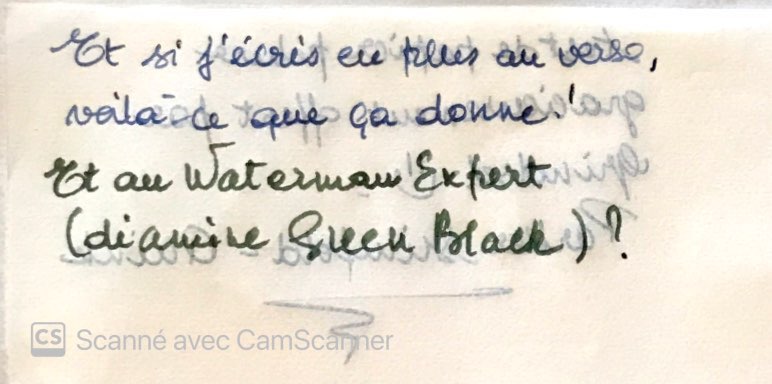 Et si j'écris en plus au verso,
voilà ce que ça donne !
Et au Waterman Expert
(diamine Green Black) ?
CS Scanné avec CamScanner